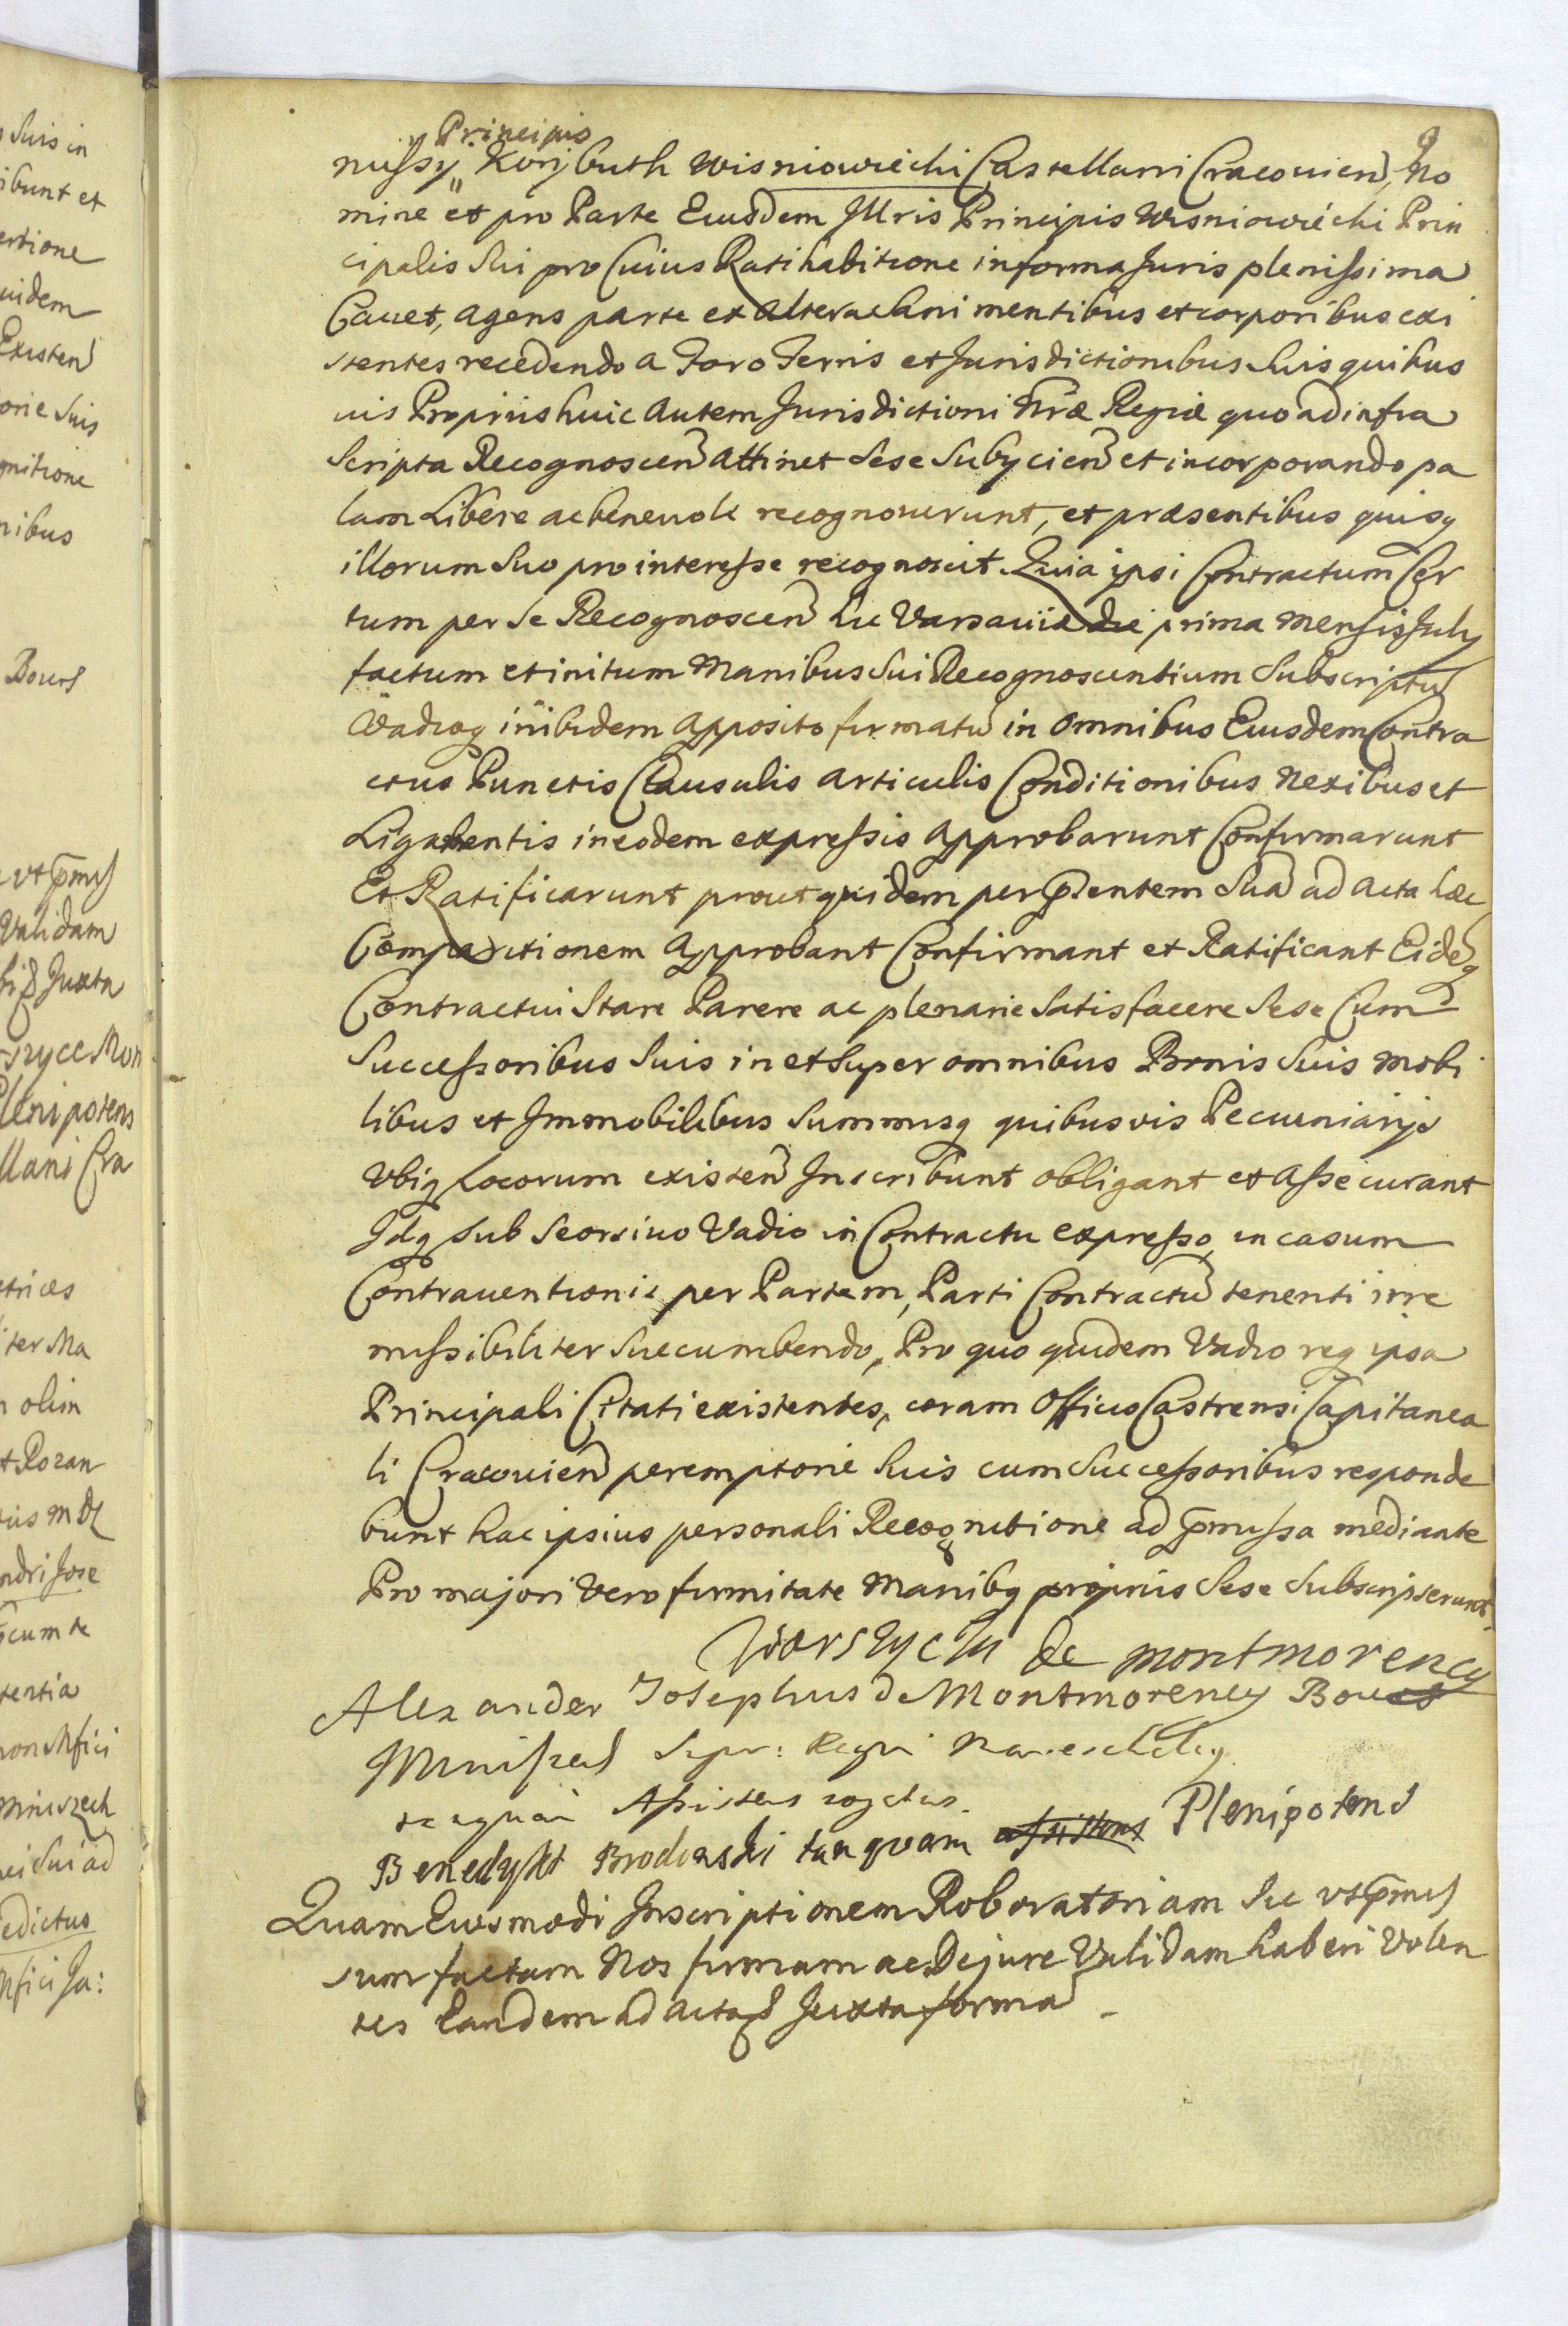 suis in
ibunt et
ertione
uidem
Existen
orie suis
gnitione
nibus
Bours
vt pmis
Validam
Juxta
Plenipotens
llani Cra
etrices
iter Ma
olim
et Rozan
ndri Jose
tertia
Mniszech
ei sui ad
edictus
Principis
nussy Korybuth Wisniowiechi Castellani Cracouien, No
mine et pro Parte Eiusdem Illris Principis Wisniowiechi Prin
cipalis sui pro Cuius Ratihabitione in forma Juris plenissima
Cauet, agens parte ex altera sani mentibus et corporibus exi
stentes recedendo a Foro Terris et Jurisdictionibus suis quibus
uis Propriis huic autem Jurisdictioni Nrae Regiae quo ad infra
scripta Recognoscen attinet sese subycien et incorporando pa
lam Libere ac beneuole recognouerunt, et praesentibus quisq
illorum suo pro interesse recognoscit. Quia ipsi Contractum Cer
tum per se Recognoscen hic Varsauiae die prima Mensis July
factum et initum Manibus sui Recognoscentium Subscriptu
Vadioq inibidem apposito firmatu in omnibus Eiusdem Contra
ctus Punctis Clausulis Articulis Conditionibus Nexibus et
Ligamentis in eodem expressis approbarunt Confirmarunt
Et Ratificarunt prout quidem per psentem Sua ad acta haec
Comparitionem approbant Confirmant et Ratificant Eideq
Contractui Stare Parere ac plenarie satisfacere sese Cum
Successoribus suis in et super omnibus Bonis suis mobi
libus et Immobilibus summisq quibusvis Pecuniarijs
Vbiq Locorum existen Inscribunt obligant et assecurant
Idq sub seorsiuo Vadio in Contractu expresso in casum
Contrauentionis per Partem, Parti Contractu tenenti irre
missibiliter succumbendo, Pro quo quidem Vadio req ipsa
Principali Citati existentes, coram Officio Castrensi Capitanea
li Cracouien peremptorie suis cum successoribus responde
bunt hac ipsius personali Recognitione ad pmissa mediante
Pro majori vero firmitate Manibq propriis sese subscripserunt
de montmorency
Alexander Josephus de Montmorency Bours
Mniszech Supr: Regni Mareschelcq
tanquam Assistens rogatus
Benedykt Brodowski tanquam assistens Plenipotens
Quam Eiusmodi Inscriptionem Roboratoriam sic vt pmis
sum factam Nos firmam ac De jure Validam haberi Volen
tes Eandem ad acta Juxta forma